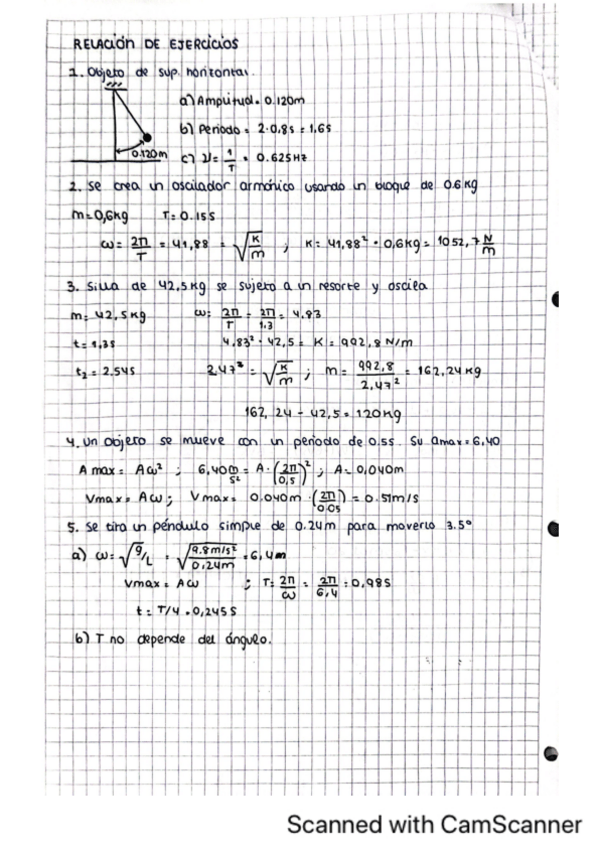 RELACIÓN DE EJERCICIOS
1. Objeto de sup. horizontal.
a) Amplitud = 0.120m
b) Periodo = 2·0,8s = 1.6s
0.120m
c) ν = 1/T = 0.625Hz
2. Se crea un oscilador armónico usando un bloque de 0.6 kg
m = 0,6kg T = 0.15s
ω = 2π/T = 41,88 = √(K/m) ; K = 41,88² · 0,6kg = 1052,7 N/m
3. Silla de 42,5kg se sujeta a un resorte y oscila
m = 42,5kg ω = 2π/T = 2π/1.3 = 4,83
t = 1,3s 4,83² · 42,5 = K = 992,8 N/m
t₂ = 2.54s 2.47² = √(K/m) ; m = 992,8/2,47² = 162,24 kg
162,24 - 42,5 = 120kg
4. Un objeto se mueve con un periodo de 0.5s. Su amax = 6,40
Amax = Aω² ; 6,40 m/s² = A · (2π/0,5)² ; A = 0,040m
Vmax = Aω ; Vmax = 0.040m · (2π/0.05) = 0.51m/s
5. Se tira un péndulo simple de 0.24m para moverlo 3.5°
a) ω = √g/L = √(9.8m/s²/0,24m) = 6,4m
Vmax = Aω ; T = 2π/ω = 2π/6,4 = 0,98s
t = T/4 = 0,245s
b) T no depende del ángulo.
Scanned with CamScanner